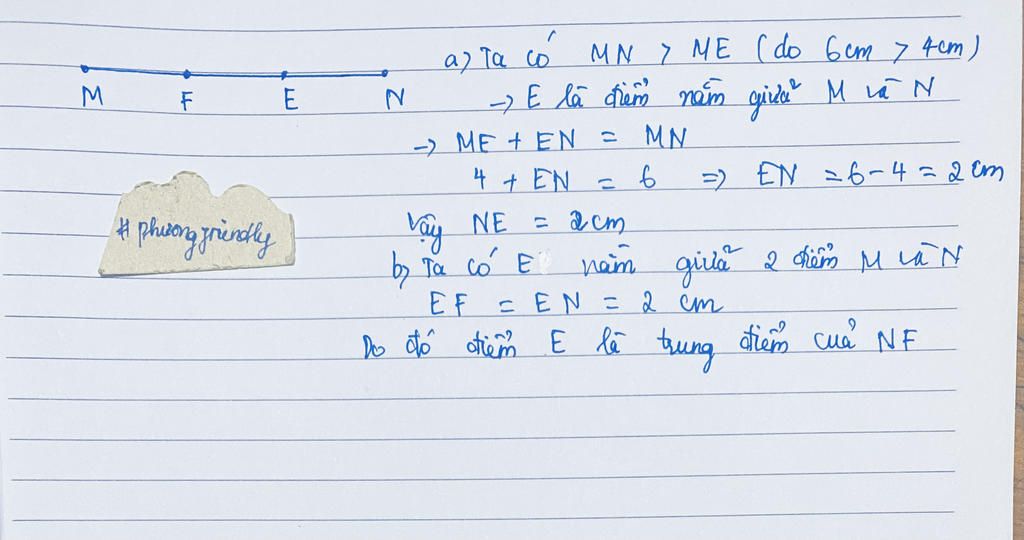 a) Ta có MN > ME (do 6cm > 4cm)
M F E N
→ E là điểm nằm giữa M và N
→ ME + EN = MN
4 + EN = 6 => EN = 6 - 4 = 2 cm
# phuongfriendly
Vậy NE = 2cm
b) Ta có E nằm giữa 2 điểm M và N
EF = EN = 2 cm
Do đó điểm E là trung điểm của NF